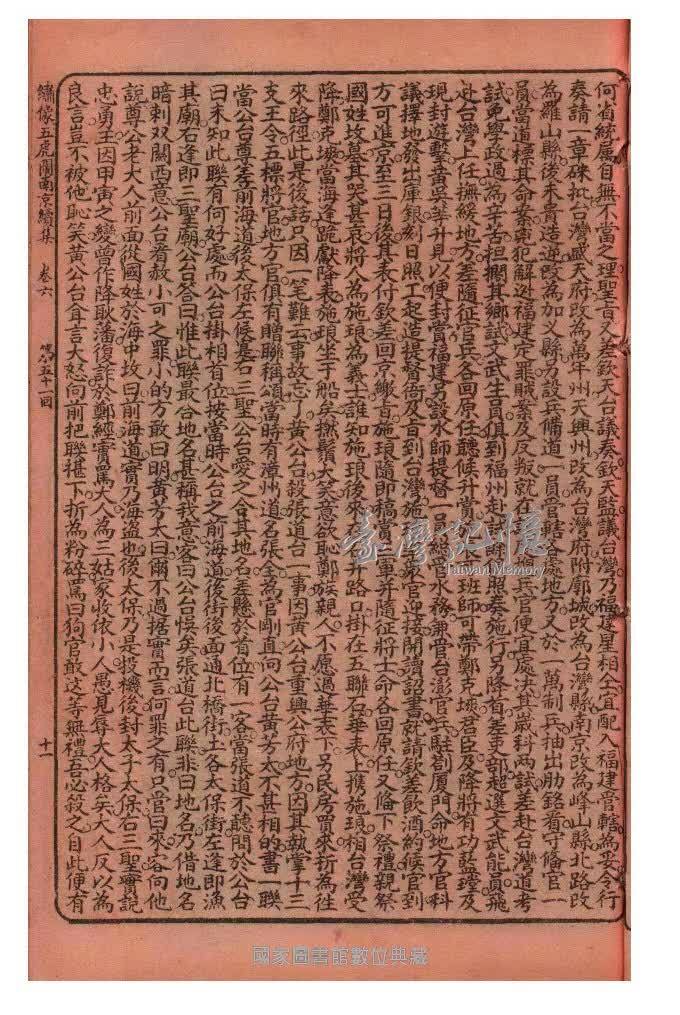 何省統屬自無不當之理聖旨又差欽天台議奏欽天監議台灣乃福建星相全宜配入福建管轄為妥令行
奏請一章硃批台灣盛天府改為萬年州天興州改為台灣府附廓城改為台灣縣南京改為峰山縣北路改
為羅山縣後未肯造逆改為加義縣另設兵備道一員管轄各處地方又於一萬制兵抽出肋銘省守備官一
員當道標其命案寃犯解逊福建定罪賊案及反叛就在兵官便宜處决其歲科兩試差赴台灣道考
試免學政過為辛苦担擱其鄉試文武生員俱到福州赴試除照奏施行另降旨差吏部超選文武能員飛
赴台灣上任撫緩地方差隨征官兵各回原任聽候升賞班師可帶鄭克塽君臣及降將有功藍瑝及
現封遊擊音吳華升見以便封賞福建另設水師提督一員總官水務兼管台澎官兵駐劄厦門命地方官科
議擇地發出庫銀刻日照工起造提督衙及旨到台灣施眾官迎接開讀詔書就請欽差飲酒約候官到
方可進京至三日後具表付欽差回京繳旨施琅隨即稿賞三軍并隨征將士命各回原任又備下祭禮親祭
國姓坟墓其哭甚哀將人為施琅為義士誰知施琅後來井路口掛在五聯石華表上携施琅相台灣受
降鄭克塽當海逢跪獻降表施琅坐于船矣撚鬚大笑意欲恥鄭族親人不愿過華表下另民房買來折為往
來路徑此是後話只因一笔難云事故忘了黃公台殺張道台一事因黃公台重興公府地方因其執掌十三
支王令五標將官地方官俱有贈聯稱頌當時有漳州道名張全為官剛直向公台黃芳太不甚相的書一聯
當公台尊差前海道後太保左候墓右三聖公台愛之合其地名差懸於首位有一客當張道不聽聞於公台
曰未知此聯有何好處而公台掛相首位按當時公台之前海道後街後面通北橋街土各太保街左逢即漁
其廟右逢即三聖廟公台答曰惟此聯最合地名甚稱我意客曰公台悞矣張道台此聯非曰地名乃借地名
暗剌双關西意公台肴赦小可之罪小的方敢曰明黃芳太曰爾不過据實而言何罪之有只管曰來客向他
說尊公老大人前面從國姓於海中故曰前海道實乃海盗也後太保乃是投機後封太子太保右三聖實說
忠勇王因甲寅之變曾作降耿藩復詐於鄭經實罵大人為三姑家收依小人愚見辱大人格矣大人反以為
良言豈不被他恥笑黃公台㑹言大怒向前把聯椹下折為粉碎罵曰狗官敢这等無禮吾必殺之自此便有
繡像五虎鬧南京續集
卷六
第五十一回
十一
臺灣記憶
Taiwan Memory
國家圖書館數位典藏